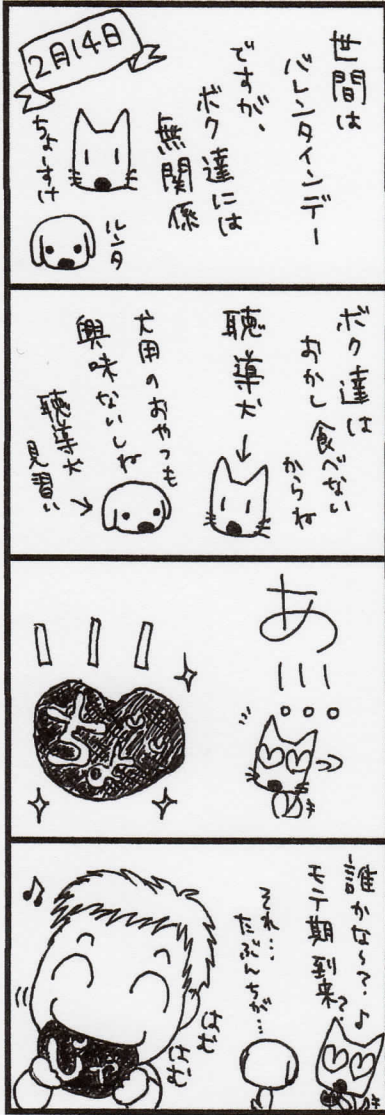 2月14日
世間は
バレンタインデー
ですが、
ボク達には
無関係
ちょーすけ
ルンタ
ボク達は
おかし食べない
からね
聴導犬
犬用のおやつも
興味ないしね
聴導犬
見習い
あ…
誰かな〜?♪
モテ期到来?
それ…
たぶんちが…
はむ
はむ